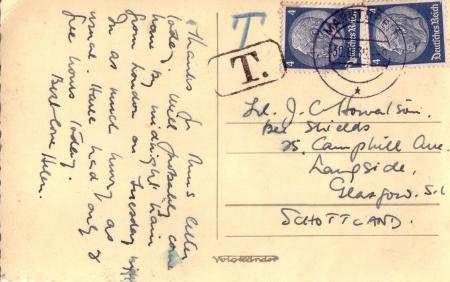 Thanks for Mum's letter
today. Will probably come
home by midnight train
from London on Tuesday night
In as much hurry as
usual. Have had only 2
free hours today.
Best love Helen.
T
T.
4
4
Deutsches Reich
Deutsches Reich
Lt. J. C. Howatson,
bei Shields
25, Camphill Ave.
Langside,
Glasgow. S.1
SCHOTTLAND.